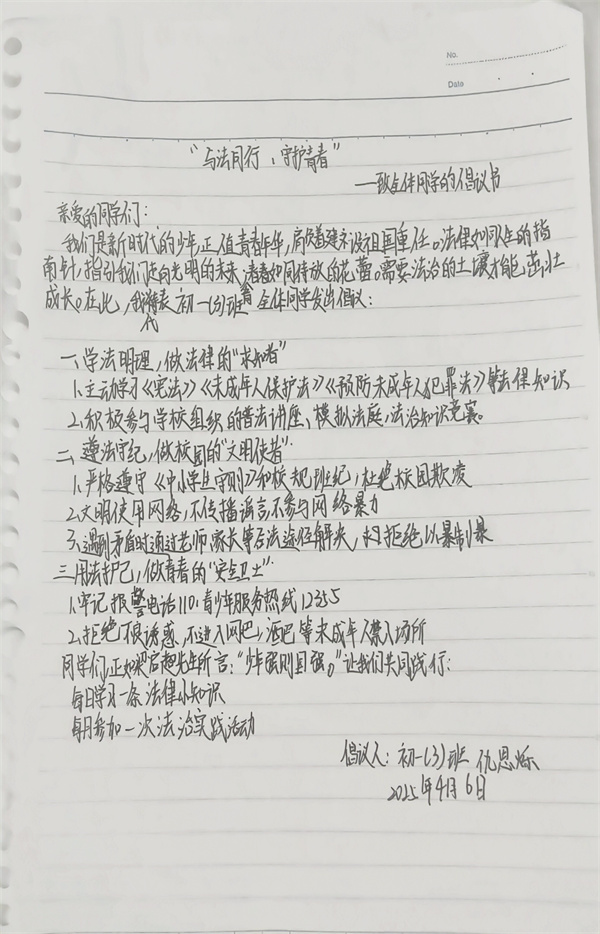 No.
Date
“与法同行、守护青春”
——致全体同学的倡议书
亲爱的同学们：
我们是新时代的少年,正值青春年华,肩负着建设祖国重任。法律如同人生的指
南针,指引我们走向光明的未来,青春如同待放的花蕾。需要法治的土壤才能茁壮
成长。在此,我代表初一(3)班向全体同学发出倡议：
一、学法明理,做法律的“求知者”
1.主动学习《宪法》《未成年人保护法》《预防未成年人犯罪法》等法律知识
2.积极参与学校组织的普法讲座、模拟法庭,法治知识竞赛。
二、遵法守纪,做校园的“文明使者”
1.严格遵守《中小学生守则》和校规班纪,杜绝校园欺凌
2.文明使用网络,不传播谣言,不参与网络暴力
3.遇到矛盾时通过老师、家长等合法途径解决,拒绝以暴制暴
三、用法护己,做青春的“安全卫士”
1.牢记报警电话110,青少年服务热线12355
2.拒绝不良诱惑,不进入网吧,酒吧等未成年人禁入场所
同学们,正如梁启超先生所言：“少年强则国强。”让我们共同践行：
每日学习一条法律小知识
每月参加一次法治实践活动
倡议人：初一(3)班 仇恩烁
2025年4月6日